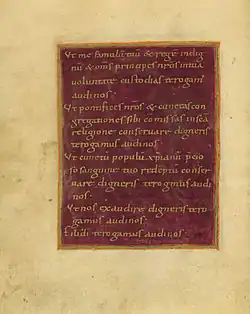 Ut me famulū tuū & regē indig
nū & om̄s principes nr̄os in tua
voluntate custodias te rogam̄
audi nos·
Ut pontifices nr̄os & cunctas con
gregationes sibi cōmissas in sc̄a
religione conservare digneris
te rogamus audi nos·
Ut cunctū populū xp̄ianū p̄cio
so sanguine tuo redēptū conser
vare digneris te rogamus audi
nos·
Ut nos exaudire digneris te ro
gamus audi nos·
Fili dī te rogamus audi nos·